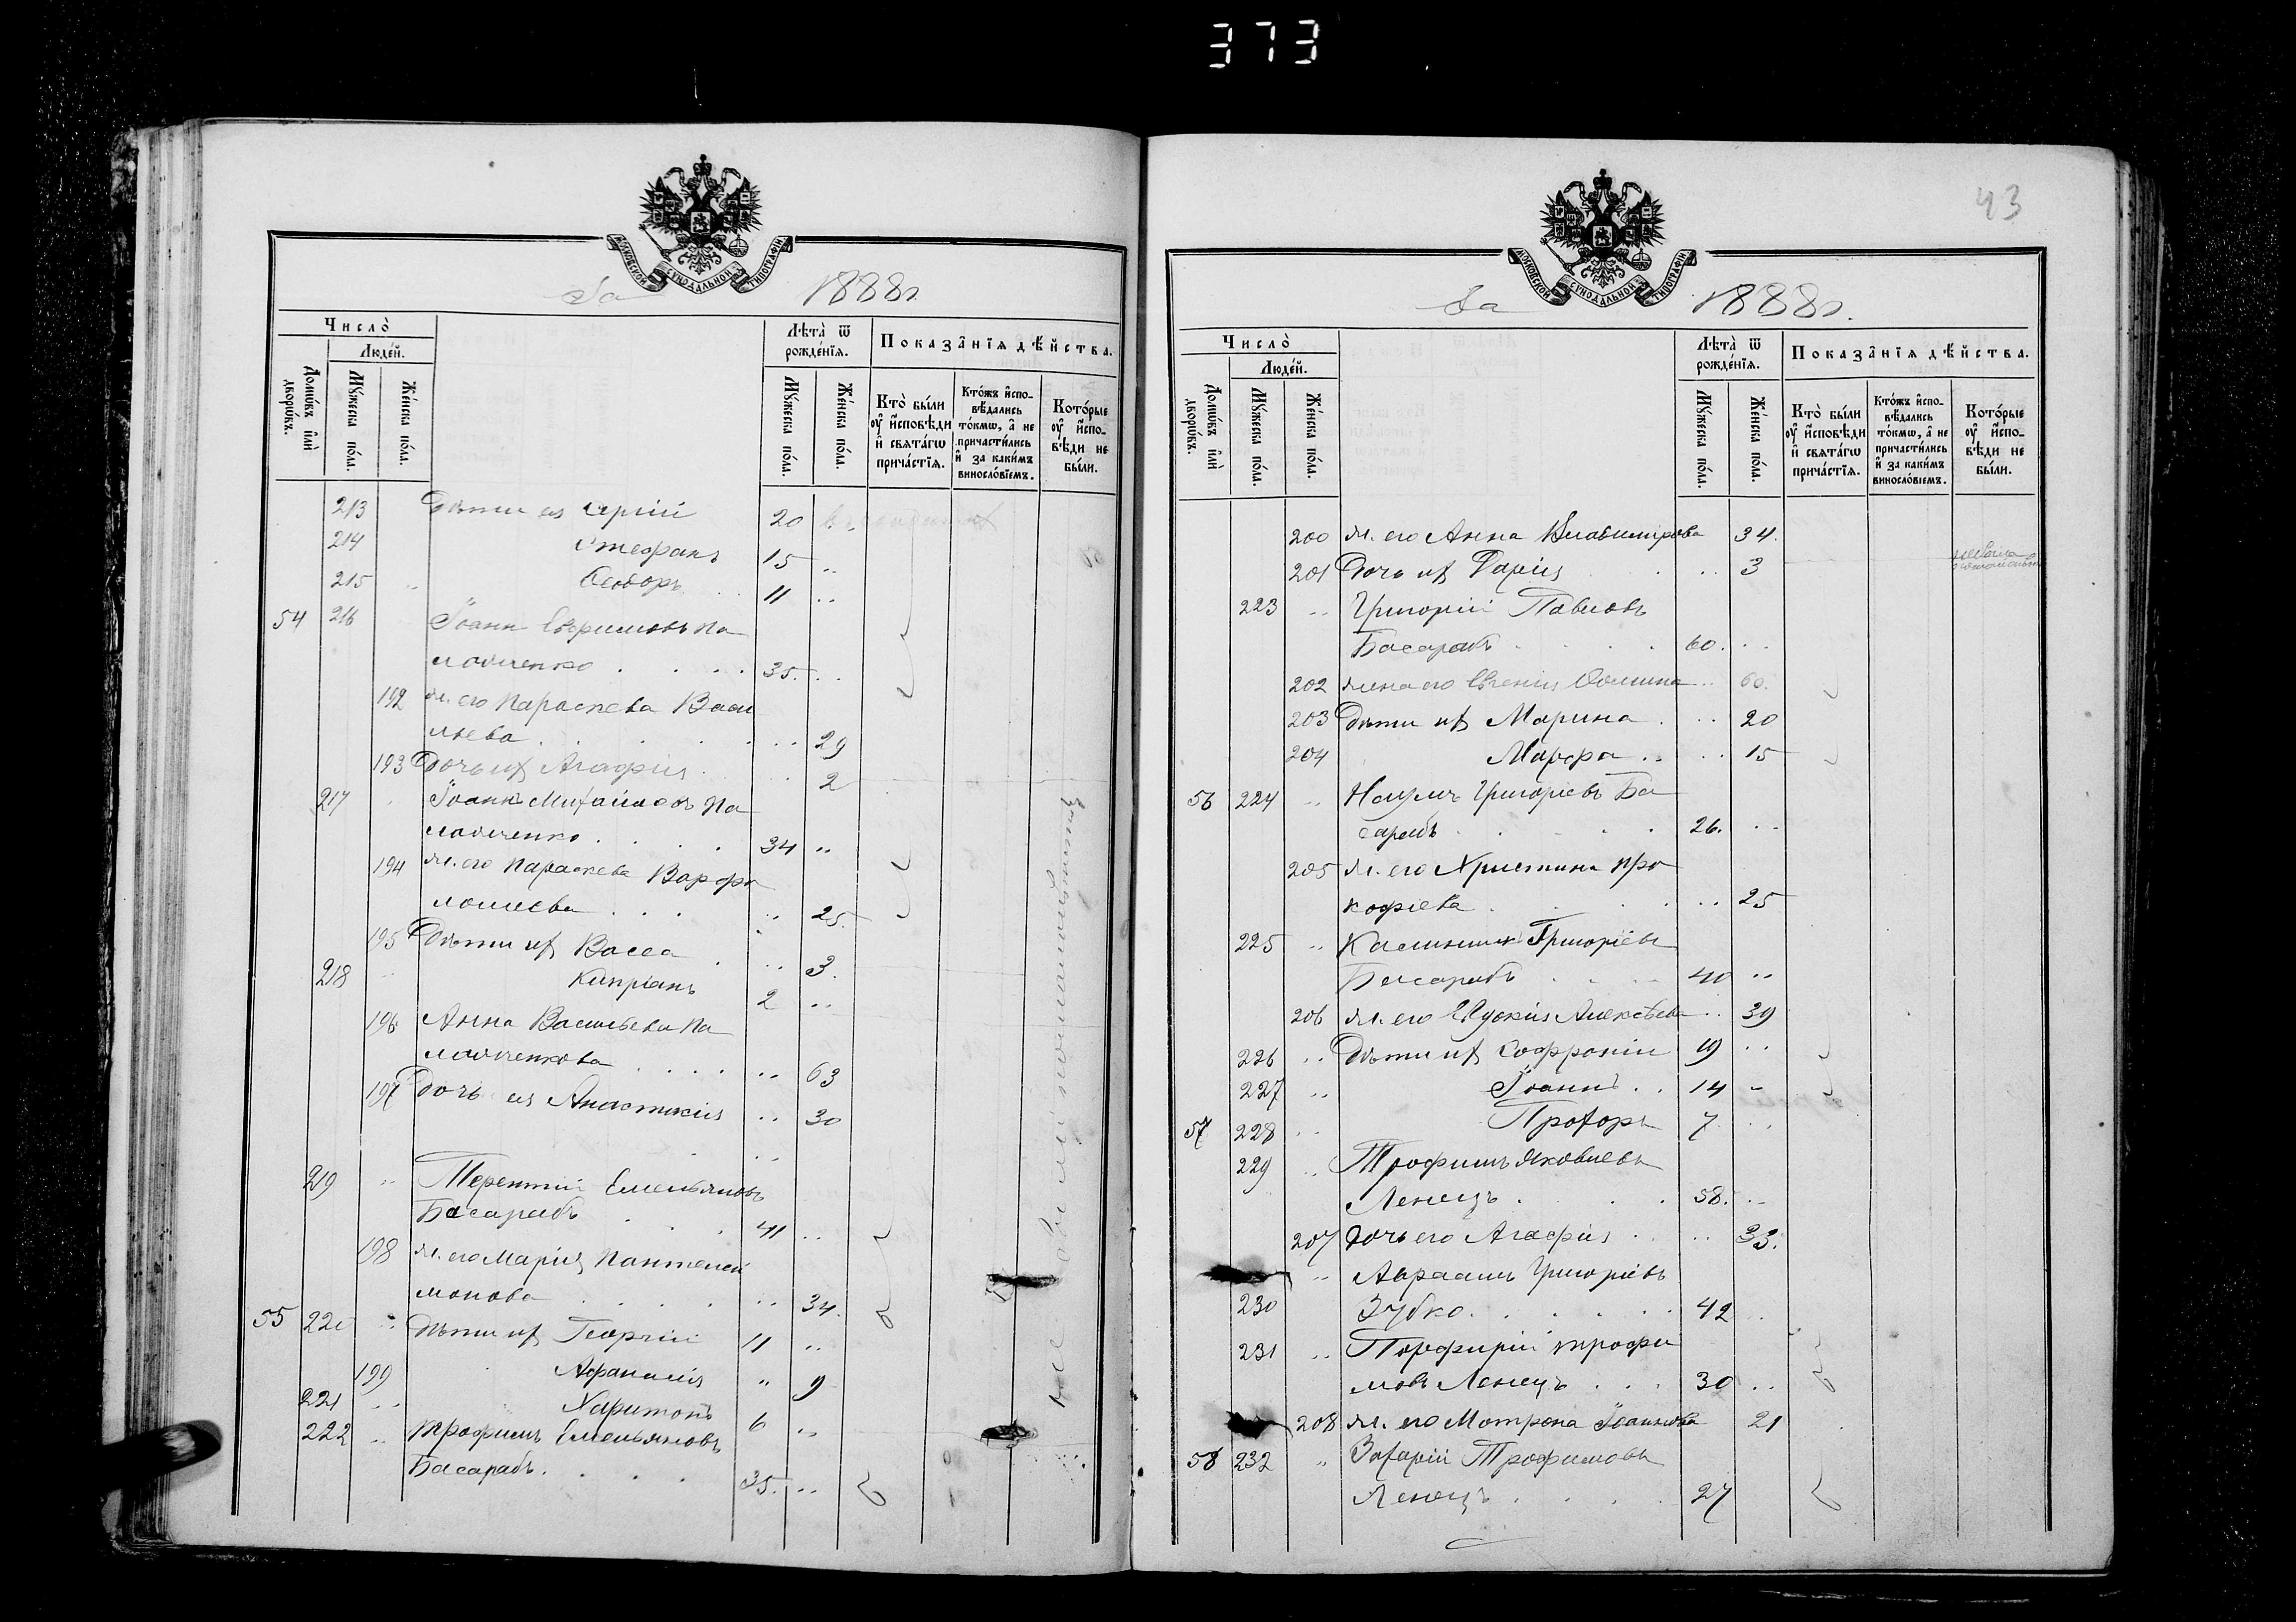 373
МОСКОВСКОЙ СѴНОДАЛЬНОЙ ТИПОГРАФІИ
За 1888 г.
Число̀
Люде́й.
Домѡ́въ и҆лѝ дворѡ́въ.
Мꙋ́жеска по́ла.
Же́нска по́ла.
Лѣта̀ ѿ рожде́нїѧ.
Мꙋ́жеска по́ла.
Же́нска по́ла.
Показа̂нїѧ дѣ́йства.
Кто̀ бы́ли ᲂу҆ и҆сповѣ́ди и҆ свѧта́гѡ прича́стїѧ.
Кто́жъ и҆спо-вѣ́дались то́кмѡ, а҆ не причасти́лись и҆ за каки́мъ виносло́вїемъ.
Кото́рые ᲂу҆ и҆спо-вѣ́ди не бы́ли.
213 Дѣти ея Сергій 20
214 Стефанъ 15 "
215 " Ѳеодоръ 11 "
54 216 Іоаннъ Евфимовъ Па
ламченко 35. "
192 ж. его Параскева Васи
льева " 29
193 Дочь их Агафія " 2
217 Іоаннъ Михайловъ Па
ламченко 34 "
194 ж. его Параскева Варфо
ломеева " 25.
195 Дѣти их Васса " 3.
218 " Кипріанъ 2 "
196 Анна Васильева Па
ламченкова " 63
197 Дочь ея Анастасія " 30
219 " Терентій Емельяновъ
Басарабъ 41 "
198 ж. его Марія Пантелей
монова " 34.
55 220 " Дѣти их Георгій 11 "
199 Афанасія " 9
221 " Харитонъ 6 "
222 " Трофимъ Емельяновъ
Басарабъ. 35. "
43
МОСКОВСКОЙ СѴНОДАЛЬНОЙ ТИПОГРАФІИ
За 1888 г.
Число̀
Люде́й.
Домѡ́въ и҆лѝ дворѡ́въ.
Мꙋ́жеска по́ла.
Же́нска по́ла.
Лѣта̀ ѿ рожде́нїѧ.
Мꙋ́жеска по́ла.
Же́нска по́ла.
Показа̂нїѧ дѣ́йства.
Кто̀ бы́ли ᲂу҆ и҆сповѣ́ди и҆ свѧта́гѡ прича́стїѧ.
Кто́жъ и҆спо-вѣ́дались то́кмѡ, а҆ не причасти́лись и҆ за каки́мъ виносло́вїемъ.
Кото́рые ᲂу҆ и҆спо-вѣ́ди не бы́ли.
200 ж. его Анна Владимірова 34.
201 Дочь их Дарія " 3
223 " Григорій Павловъ
Басарабъ 60. "
202 жена его Евгенія Ѳомина " 60.
203 Дѣти их Марина " 20
204 Марфа " 15
56 224 " Наумъ Григоріевъ Ба
сарабъ 26. "
205 ж. его Христина Про
кофіева " 25
225 " Калиникъ Григоріевъ
Басарабъ 40 "
206 ж. его Евдокія Алексѣева " 39
226 " Дѣти их Софроній 19 "
227 " Іоаннъ 14 "
57 228 " Прохоръ 7 "
229 " Трофимъ Яковлевъ
Ленецъ 58. "
207 Дочь его Агафія " 33.
" Авраамъ Григоріевъ
230 Зубко 42 "
231 " Порфирій Трофи
мовъ Ленецъ 30 "
208 ж. его Матрона Іоаннова 21
58 232 " Захарій Трофимовъ
Ленецъ 27